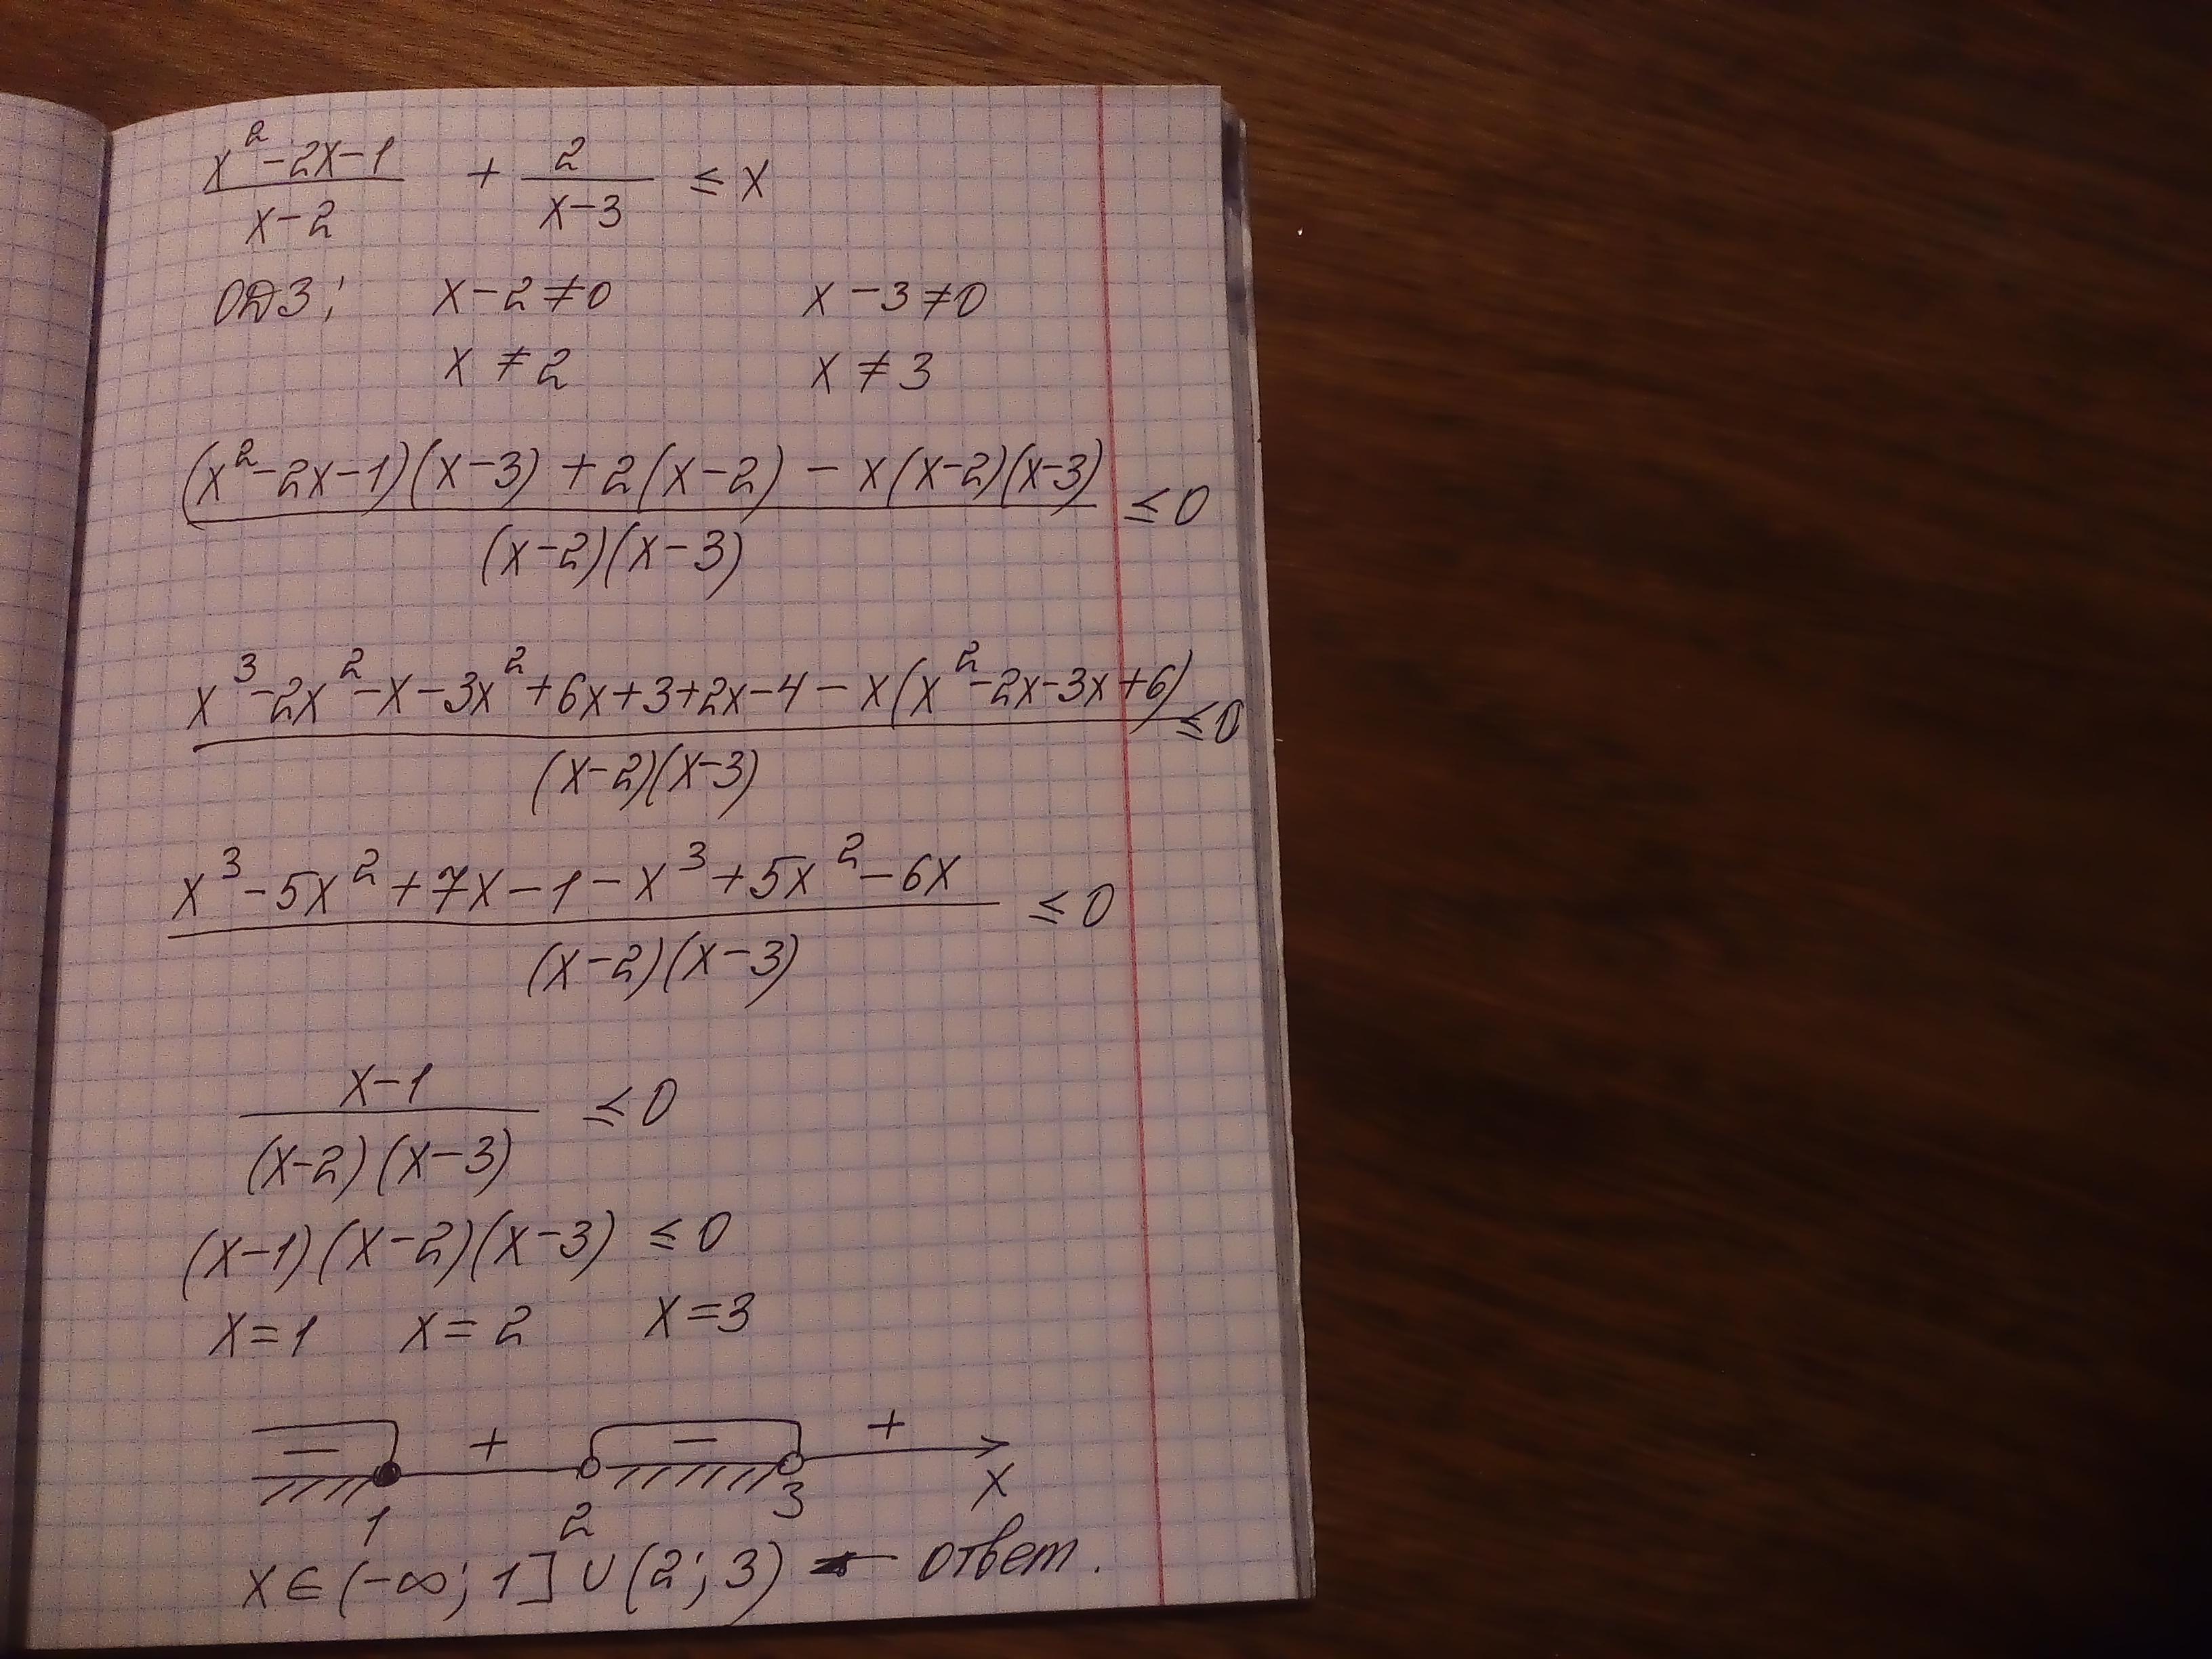 (x² - 2x - 1)/(x - 2) + 2/(x - 3) ≤ x
ОДЗ: x - 2 ≠ 0 x - 3 ≠ 0
x ≠ 2 x ≠ 3
((x² - 2x - 1)(x - 3) + 2(x - 2) - x(x - 2)(x - 3))/((x - 2)(x - 3)) ≤ 0
(x³ - 2x² - x - 3x² + 6x + 3 + 2x - 4 - x(x² - 2x - 3x + 6))/((x - 2)(x - 3)) ≤ 0
(x³ - 5x² + 7x - 1 - x³ + 5x² - 6x)/((x - 2)(x - 3)) ≤ 0
(x - 1)/((x - 2)(x - 3)) ≤ 0
(x - 1)(x - 2)(x - 3) ≤ 0
x = 1 x = 2 x = 3
- + - +
1 2 3 x
x ∈ (-∞; 1] ∪ (2; 3) - ответ.